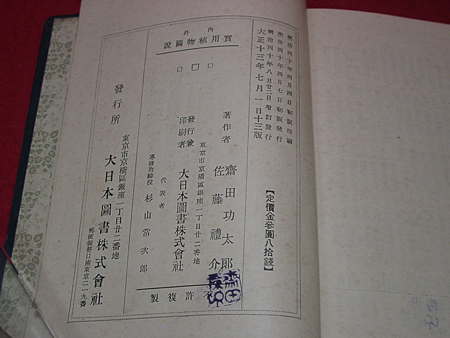 明治四十年四月四日初版印刷
明治四十年四月七日初版發行
明治四十年八月廿二日增訂發行
大正十三年七月一日十三版
【定價金參圓八拾錢】
內外
實用植物圖說
著作者
齋田功太郎
佐藤禮介
東京市京橋區銀座一丁目廿二番地
發行兼
印刷者
大日本圖書株式會社
代表者
專務取締役
杉山常次郎
不許複製
發行所
東京市京橋區銀座一丁目廿二番地
大日本圖書株式會社
振替貯金口座東京二一九番